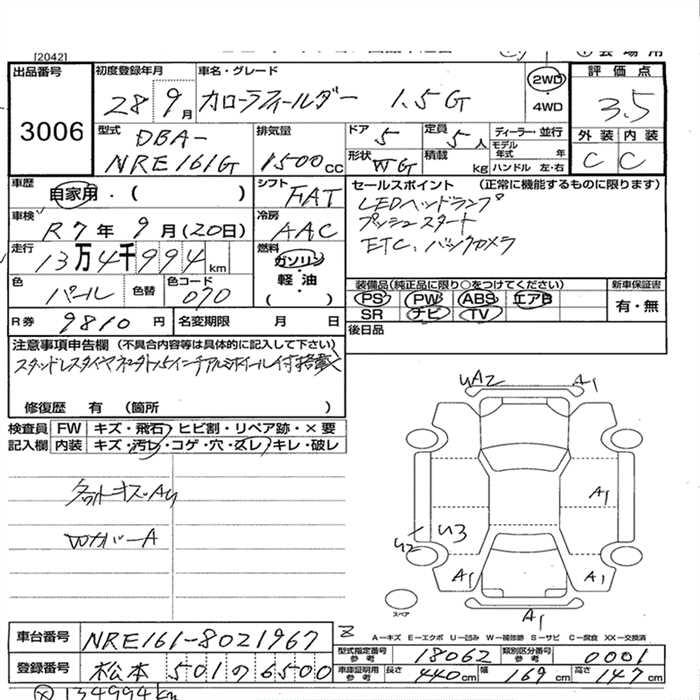 [2042]
出品番号 初度登録年月 車名・グレード 評価点
3006
28 9月 カローラフィールダー 1.5G 2WD 3.5
・4WD
外装 内装
C C
型式 DBA- 排気量 ドア 5 定員 5人 ディーラー・並行
NRE161G 1500cc 形状 WG 積載 kg モデル年式 年
ハンドル 左・右
車歴 自家用・( ) シフト FAT セールスポイント (正常に機能するものに限ります)
LEDヘッドランプ
車検 R7年 9月(20日) 冷房 AAC プッシュスタート
走行 13万4千994km 燃料 ガソリン ETC、バックカメラ
軽・油
( )
色 パール 色替 色コード 070
装備品(純正品に限り○をつけてください) 新車保証書
PS PW ABS エアB 有・無
SR ナビ TV
R券 9810円 名変期限 月 日 後日品
注意事項申告欄 (不具合内容等は具体的に記入して下さい)
修復歴 有 (箇所 )
検査員 FW キズ・飛石・ヒビ割・リペア跡・×要
記入欄 内装 キズ・汚レ・コゲ・穴・スレ・キレ・破レ
Wカバー A
UA2 A1
A1
U2 U3
A1 A1
スペア A1
A−キズ E−エクボ U−凹み W−補修跡 S−サビ C−腐食 XX−交換済
車台番号 NRE161-8021967
型式指定番号参考 18062 類別区分番号参考 0001
登録番号 松本 501 の 6500
車庫証明用参考 長さ 440cm 幅 169cm 高さ 147cm
134994km